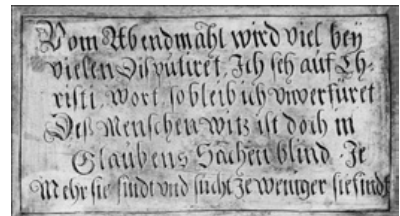 Vom Abendmahl wird viel bey
vielen Disputiret, Ich seh auf Ch-
risti, wort, so bleib ich unverfüret
Deß Menschen witz ist doch in
Glaubens Sachen blind. Je
Mehr sie sindt vnd sucht Je weniger sie findt